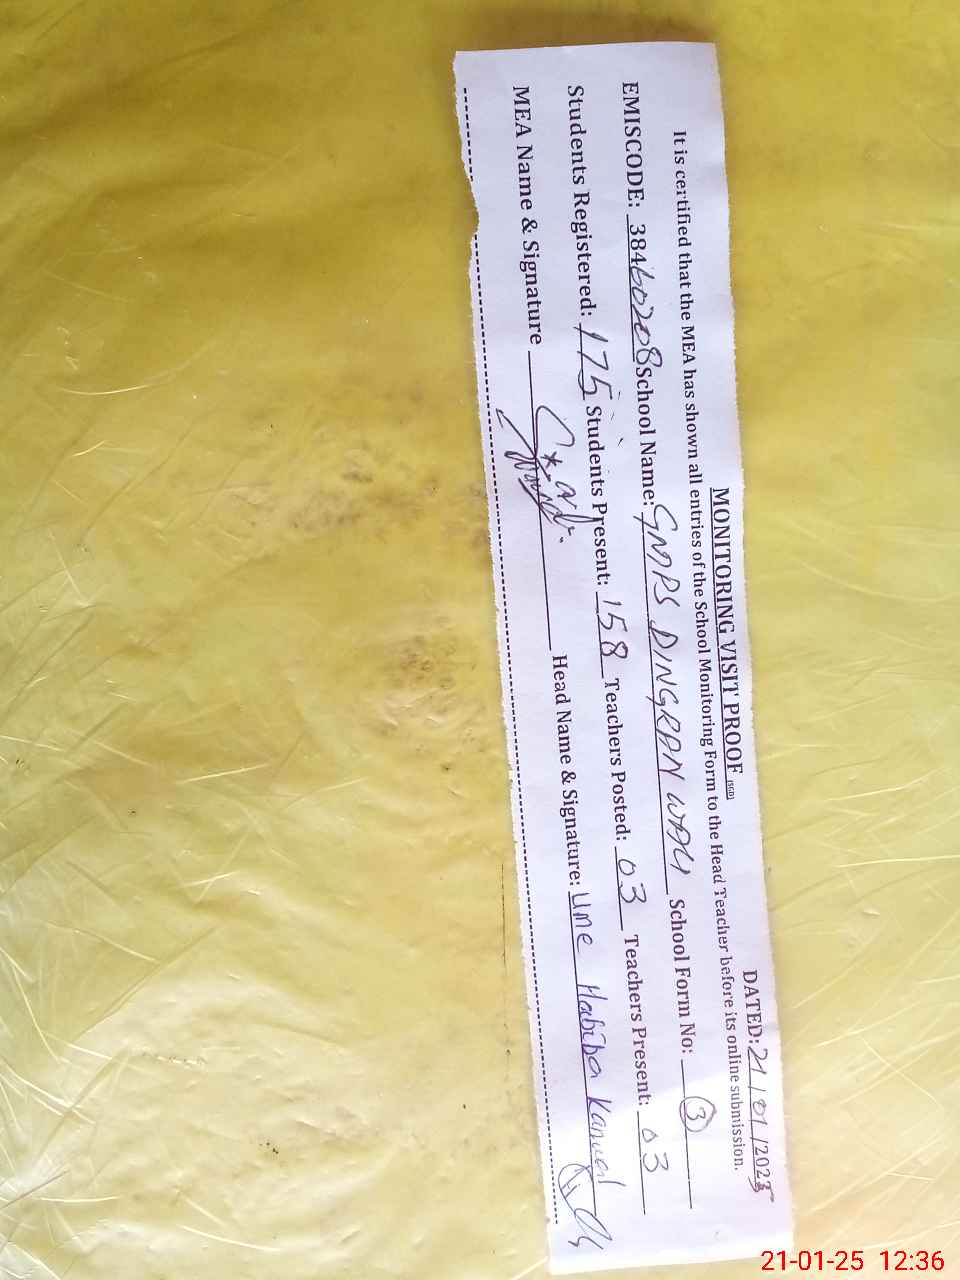 MONITORING VISIT PROOF (SGD)
DATED: 21/01/2025
It is certified that the MEA has shown all entries of the School Monitoring Form to the Head Teacher before its online submission.
EMISCODE: 38460208 School Name: GMPS DINGRAN WALI School Form No: 3
Students Registered: 175 Students Present: 158 Teachers Posted: 03 Teachers Present: 03
MEA Name & Signature Head Name & Signature: Ume Habiba Kanwal
21-01-25 12:36